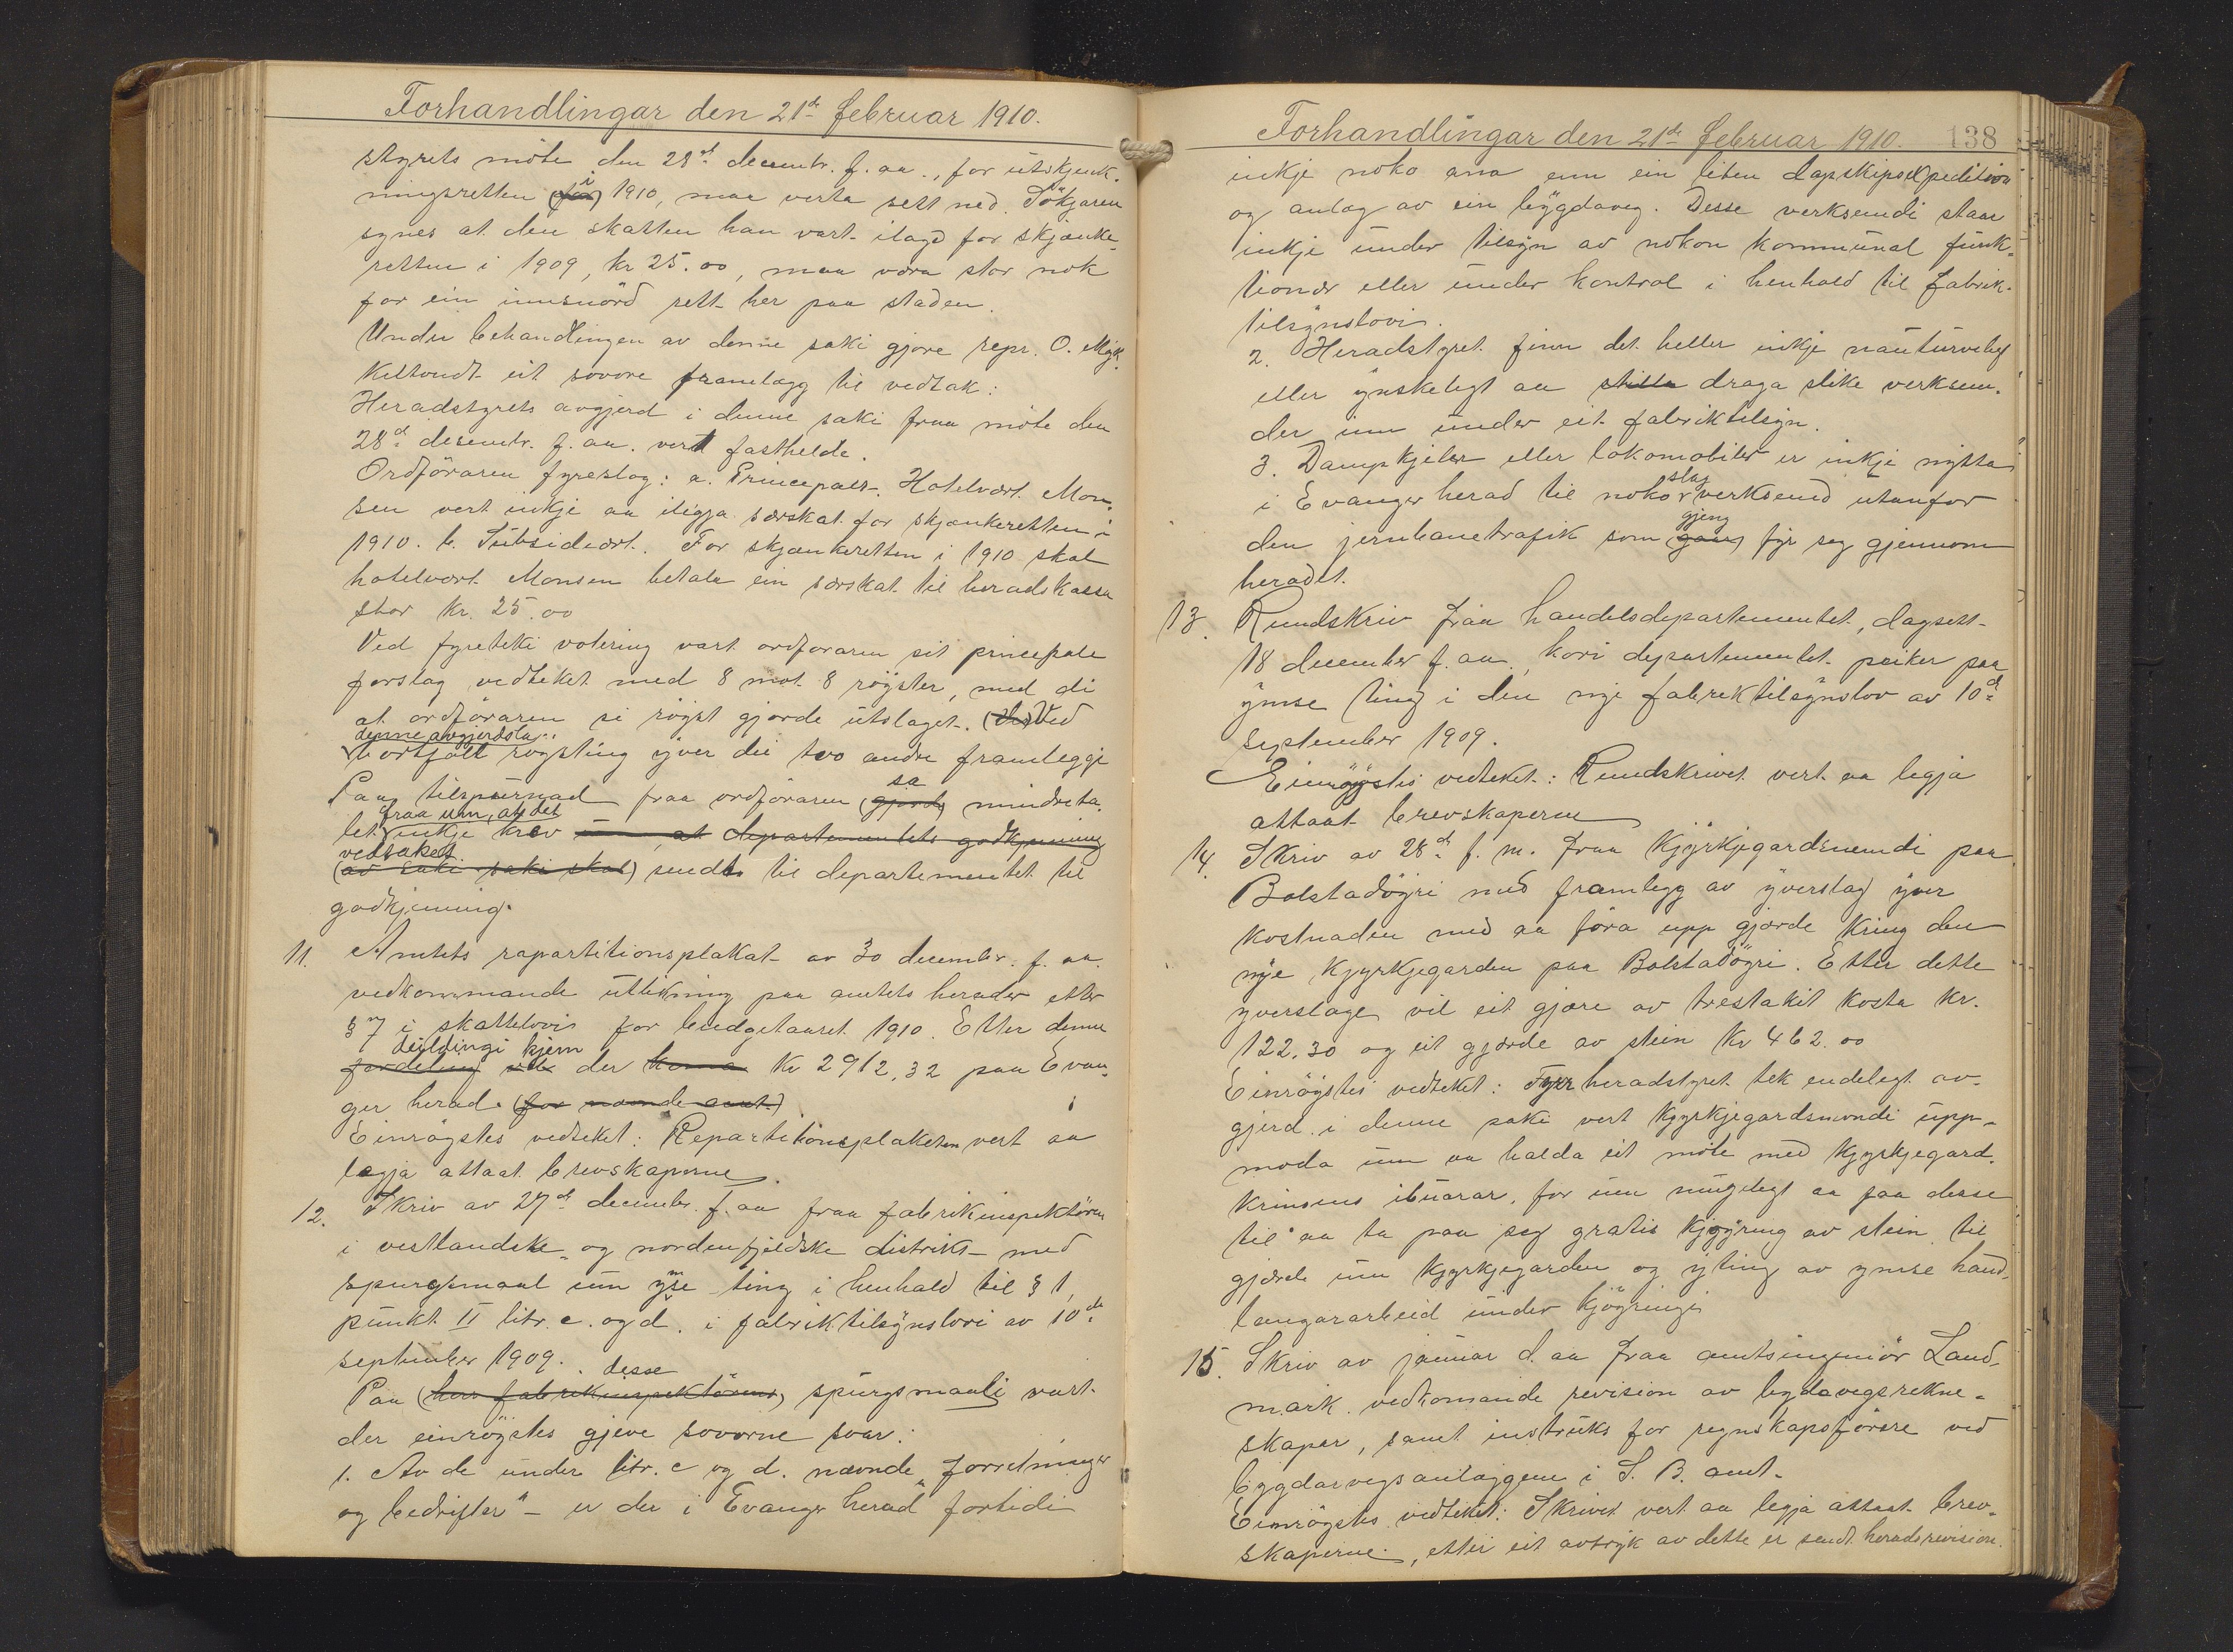 Forhandlingar den 21de februar 1910.
styrets möte den 28de decembr. f. aa., for utskjenk-
ningsretten (for) i 1910, maa verta sett ned. Sökjaren
synes at den skatten han vart ilagd for skjænke-
retten i 1909, kr 25.00, maa vera stor nok
for ein innsnörd rett her paa staden.
Under behandlingen av denne saki gjore repr. O. Myk-
keltvedt eit sovore framlegg til vedtak:
Heradstyrets avgjerd i denne saki fraa möte den
28de desembr. f. aa. vert fasthelde.
Ordföraren fyreslog: a. Principalt. Hotelvært Mon-
sen vert inkje aa ileggja særskat for skjænkeretten i
1910. b. Subsidiært. For skjænkeretten i 1910 skal
hotelvært Monsen betale ein særskat til heradskassa
stor kr. 25.00
Ved fyreteki votering vart ordföraren sit principale
forslag vedteket med 8 mot 8 röyster, med di
at ordföraren si röyst gjorde utslaget. (Ved) Ved
denne avgjerdsla
bortfall röysting yver dei tvo andre framleggi
Paa tilspurnad fraa ordföraren (gjorde) sa mindreta-
fraa um, at det
let inkje krev um at departementets godkjenning
vedtaket
(av saki saki skal) sendes til departementet til
godkjenning.
11. Amtets repartitionsplakat av 30 decembr. f. aa.
vedkommande utlikning paa amtets herader etter
§ 7 i skattelovi for budgetaaret 1910. Etter denne
deildingi kjem
fordeling vil der koma kr 2912,32 paa Evan-
ger herad. (for nævnde aaret.)
Einröystes vedteket: Repartitionsplakaten vert aa
legja attaat brevskaperne.
12. Skriv av 27de decembr. f. aa fraa fabrikinspektören
i vestlandske og nordenfjeldske distrikt med
spursmaal um ymse ting i henhald til § 1,
punkt II litr. c. og d. i fabriktilsynslovi av 10de
september 1909.
desse
Paa (her fabrikinspektörens) spurgsmaali vart
der einröystes gjeve sovorne svar:
1. Av de under litr. c og d. nævnde „forretninger
og bedrifter" – er der i Evanger herad fortidi
Forhandlingar den 21de februar 1910. 138
inkje noko ana enn ein liten dagskipsexpedition
og anlæg av ein bygdaveg. Desse verksemdi staar
inkje under tilsyn av nokon kommunal funk-
tionær eller under kontrol i henhald til fabrik-
tilsynslovi.
2. Heradstyret finn det heller inkje nauturveleg
eller ynskelegt aa stilla draga slike verksem-
der inn under eit fabriktilsyn.
3. Dampkjeler eller lokomobiler er inkje nytta
slag
i Evanger herad til nokor verksemd utanfor
gjeng
den jernbanetrafik som (gaar) fyr seg gjennom
heradet.
13. Rundskriv fraa Handelsdepartementet, dagsett
18 december f. aa., kori departementet peiker paa
ymse ting i den nye fabriktilsynslov av 10de
september 1909.
Einröystes vedteket: Rundskrivet vert aa legja
attaat brevskaperne
14. Skriv av 28de f. m. fraa Kjyrkjegardsnemdi paa
Bolstadöyri med framlegg av yverslag yver
kostnaden med aa föra upp gjerde kring den
nye kjyrkjegarden paa Bolstadöyri. Etter dette
yverslage vil eit gjære av trestakit kosta kr.
122,30 og eit gjærde av stein kr 462.00
Einröystes vedteket: Fyrr heradstyret tek endelegt av-
gjerd i denne saki vert kjyrkjegardsnemdi upp-
moda um aa halda eit möte med kjyrkjegard-
krinsens ibuarar, for um mügelegt aa faa desse
til aa ta paa seg gratis kjöyring av stein til
gjærde um kjyrkjegarden og yting av ymse hand-
langararbeid under kjöyringi
15. Skriv av januar d. aa fraa amtsingeniör Land-
mark vedkomande revision av bygdavegsrekne-
skaper, samt instruks for regnskapsförere ved
bygdavegsanlæggene i S. B. amt.
Einröystes vedteket: Skrivet vert aa legja attaat brev-
skaperne, etter eit avtryk av dette er sendt heradsrevision.